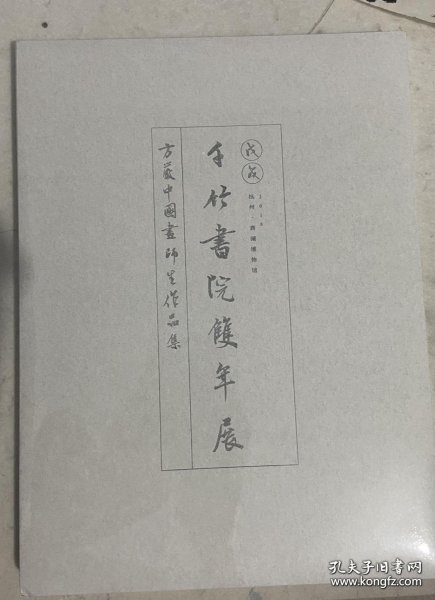 戊戌
2018
杭州·西湖博物馆
千竹書院雙年展
方嚴中國畫師生作品集
孔夫子旧书网
www.kongfz.com